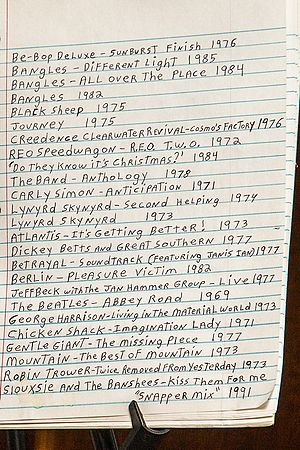 Be-Bop Deluxe - Sunburst Finish 1976
Bangles - Different Light 1985
Bangles - All Over The Place 1984
Bangles 1982
Black Sheep 1975
Journey 1975
Creedence Clearwater Revival - Cosmo's Factory 1976
REO Speedwagon - R.E.O. T.W.O. 1972
"Do They Know it's Christmas?" 1984
The Band - Anthology 1978
Carly Simon - Anticipation 1971
Lynyrd Skynyrd - Second Helping 1974
Lynyrd Skynyrd 1973
Atlantis - It's Getting Better! 1973
Dickey Betts and Great Southern 1977
Betrayal - Soundtrack (featuring Janis Ian) 1977
Berlin - Pleasure Victim 1982
Jeff Beck with the Jan Hammer Group - Live 1977
The Beatles - Abbey Road 1969
George Harrison - Living in the Material World 1973
Chicken Shack - Imagination Lady 1971
Gentle Giant - The Missing Piece 1977
Mountain - The Best of Mountain 1973
Robin Trower - Twice Removed From Yesterday 1973
Siouxsie And The Banshees - Kiss Them For Me
"Snapper Mix" 1991